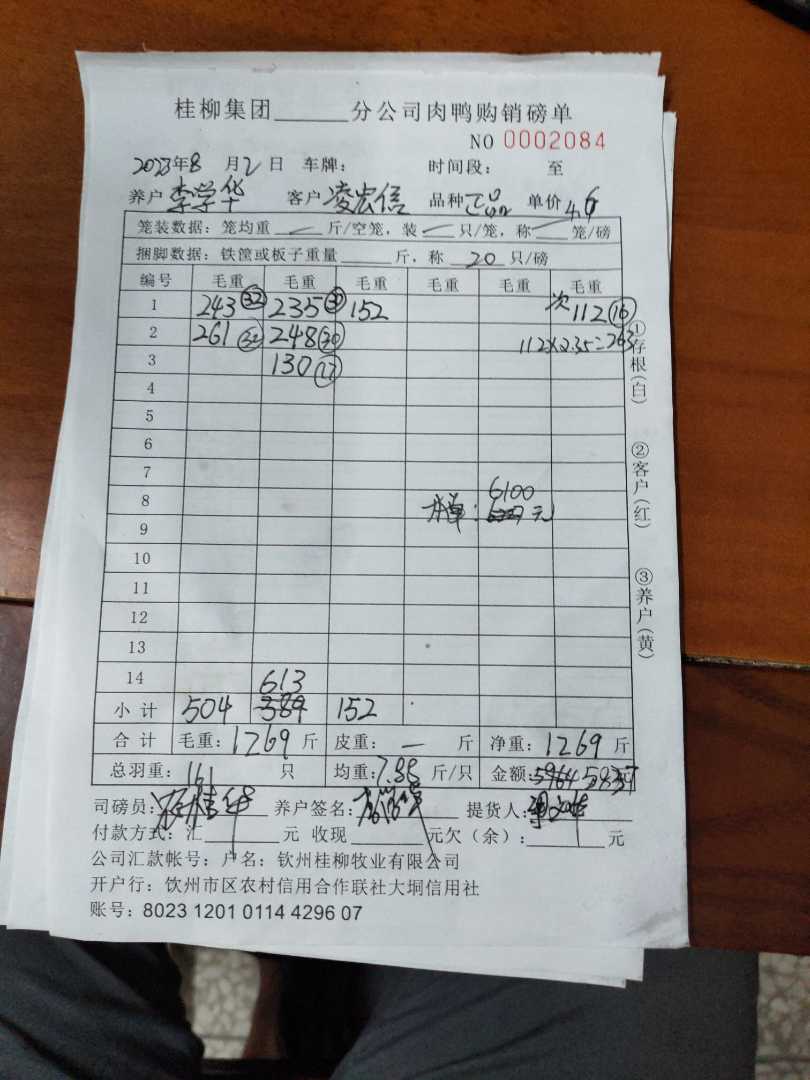 桂柳集团______分公司肉鸭购销磅单
NO 0002084
2023年8月2日 车牌: 时间段: 至
养户李学华 客户凌宏信 品种正品 单价4.6
笼装数据: 笼均重 斤/空笼, 装 只/笼, 称 笼/磅
捆脚数据: 铁筐或板子重量 斤, 称 20 只/磅
编号 毛重 毛重 毛重 毛重 毛重 毛重
1 243 (32) 235 152 次112 (16)
2 261 248 112×2.35=263
3 130 (17)
4
5
6
7
6100
8 元
9
10
11
12
13
14 613
小计 504 584 152
合计 毛重: 1269 斤 皮重: — 斤 净重: 1269 斤
总羽重: 161 只 均重: 7.88 斤/只 金额: 5964
司磅员: 养户签名: 提货人:
付款方式: 汇______元 收现______元欠(余): ______元
公司汇款帐号: 户名: 钦州桂柳牧业有限公司
开户行: 饮州市区农村信用合作联社大垌信用社
账号: 8023 1201 0114 4296 07
①存根(白)
②客户(红)
③养户(黄)